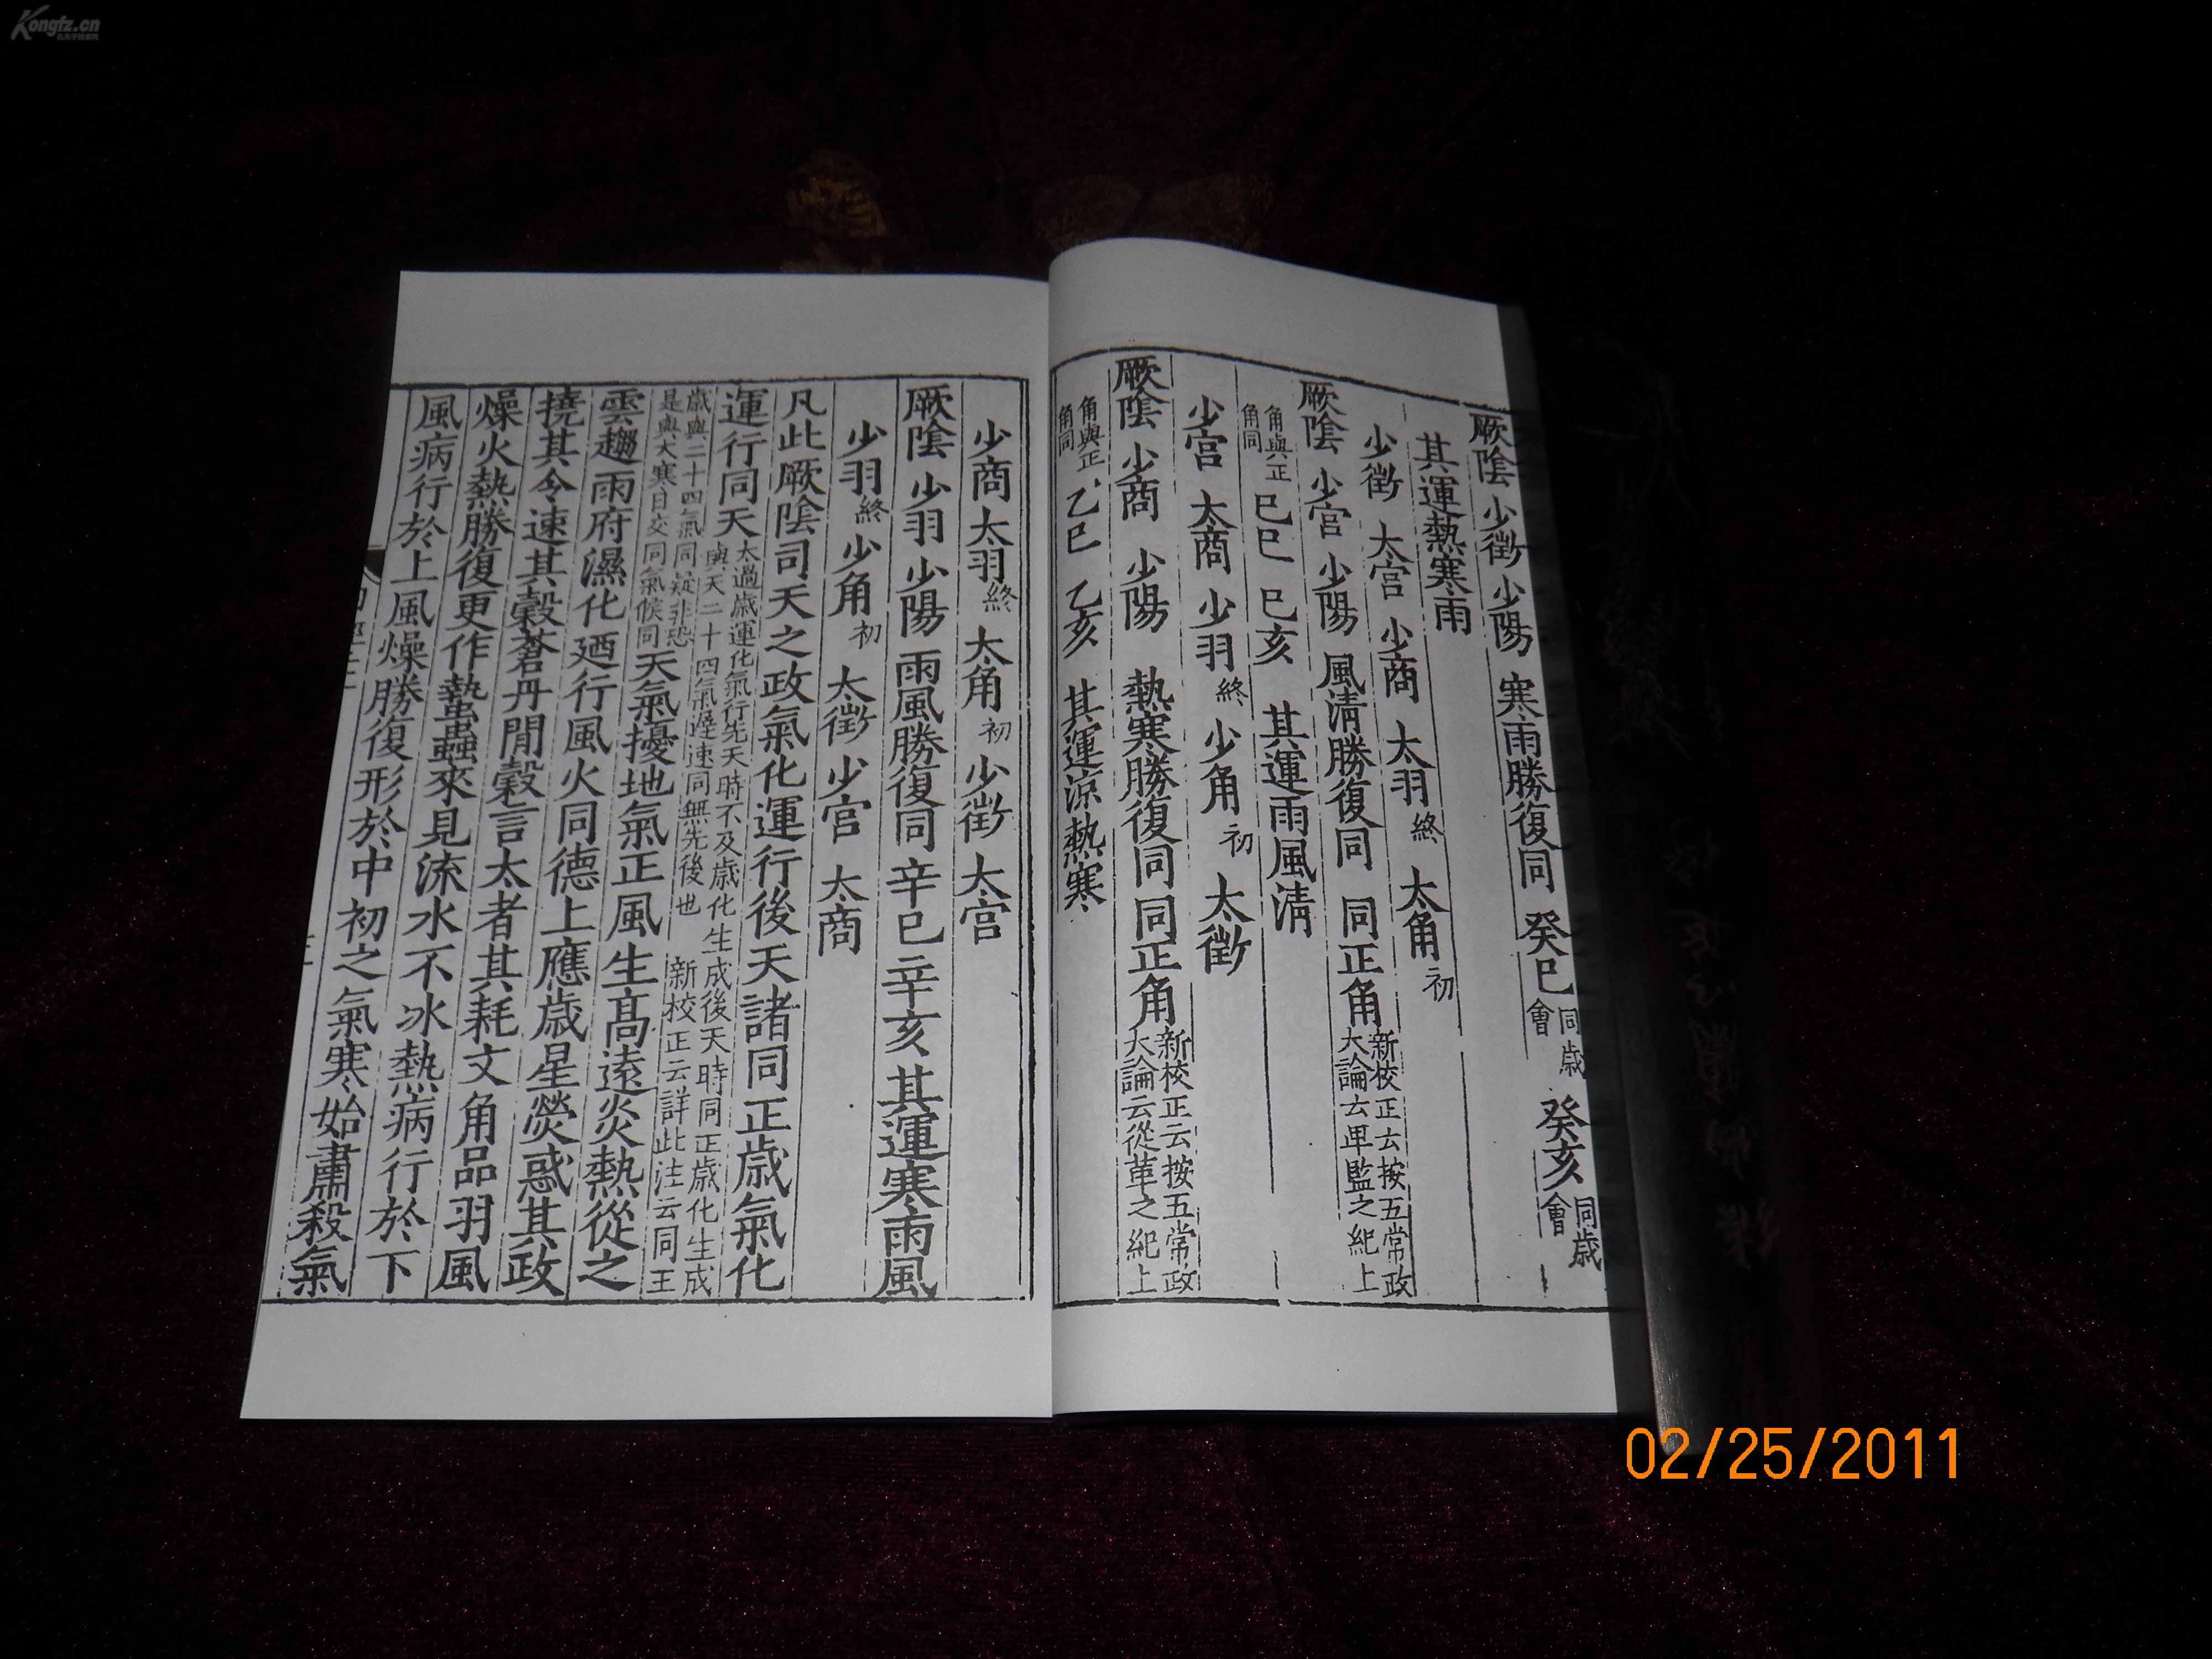 Kongfz.cn
厥陰 少徵 少陽 寒雨勝復同 癸巳 同歲會 癸亥 同歲會
其運熱寒雨
少徵 太宮 少商 太羽終 太角初
厥陰 少宮 少陽 風清勝復同 同正角 新校正云按五常政大論云卑監之紀上
角與正角同 己巳 己亥 其運雨風清
少宮 太商 少羽終 少角初 太徵
厥陰 少商 少陽 熱寒勝復同 同正角 新校正云按五常政大論云從革之紀上
角與正角同 乙巳 乙亥 其運涼熱寒
少商 太羽終 太角初 少徵 太宮
厥陰 少羽 少陽 雨風勝復同 辛巳 辛亥 其運寒雨風
少羽終 少角初 太徵 少宮 太商
凡此厥陰司天之政氣化運行後天諸同正歲氣化
運行同天 太過歲運化氣行先天時不及歲化生成後天時同正歲化生成與天二十四氣遲速同無先後也 新校正云詳此注云同王
歲與二十四氣同疑非恐是與大寒日交同氣候同 天氣擾地氣正風生高遠炎熱從之
雲趨雨府濕化廼行風火同德上應歲星熒惑其政
撓其令速其穀蒼丹間穀言太者其耗文角品羽風
燥火熱勝復更作蟄蟲來見流水不冰熱病行於下
風病行於上風燥勝復形於中 初之氣寒始肅殺氣
02/25/2011